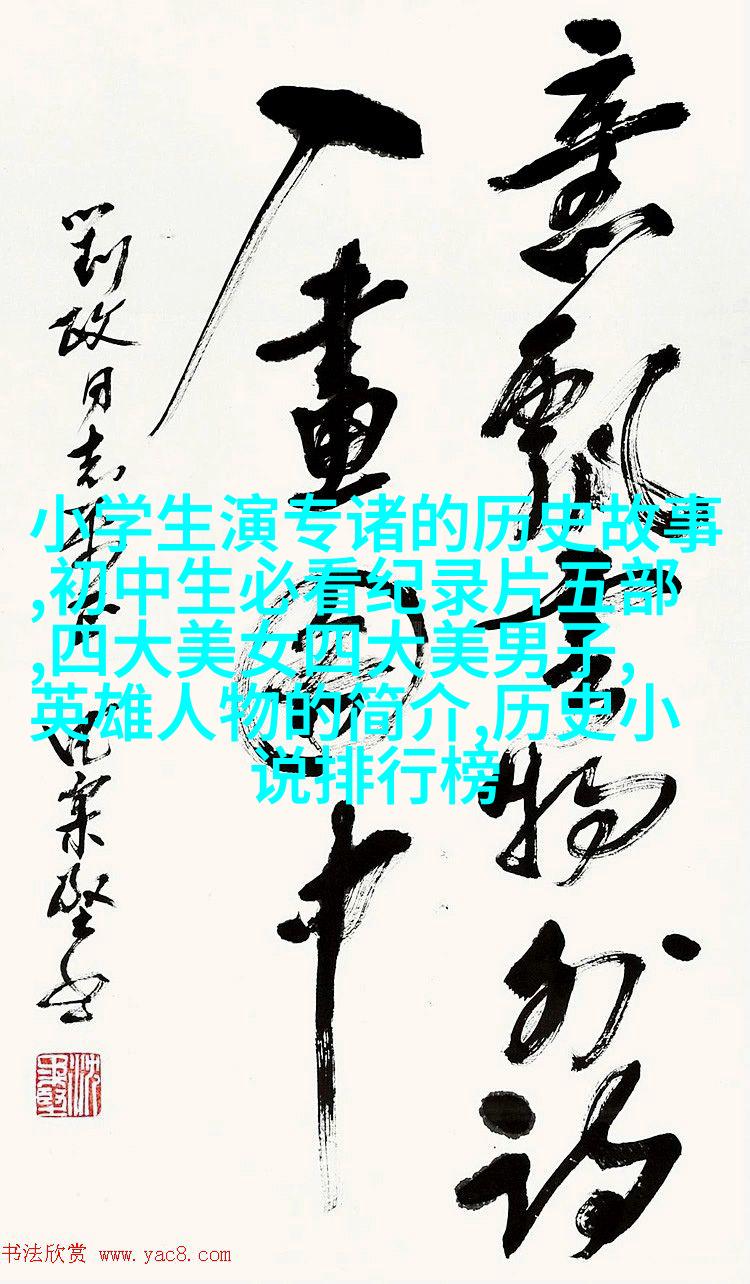 意飘云物外诗
入畫圖中
劉政同志
小学生演专诸的历史故事
,初中生必看纪录片五部
,四大美女四大美男子,
英雄人物的简介,历史小
说排行榜
书法欣赏 www.yac8.com